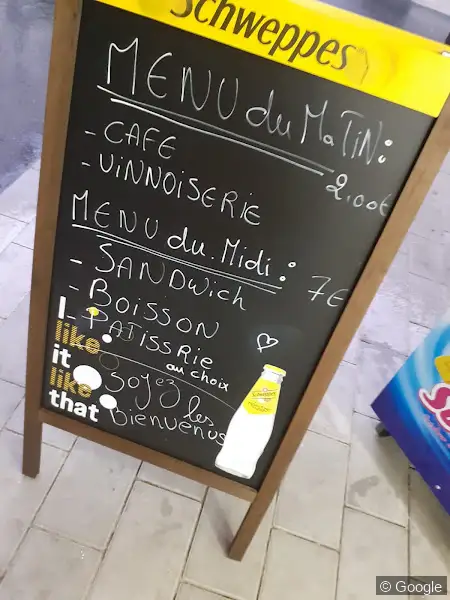 Schweppes
MENU du MaTiN:
- CAFE
2.00€
- ViNNOiSERiE
MENU du Midi:
7€
- SANDWich
- BOiSSON
- PATiSSRiE
au choix
Soyez les
Bienvenus
I
like
it
like
that
© Google